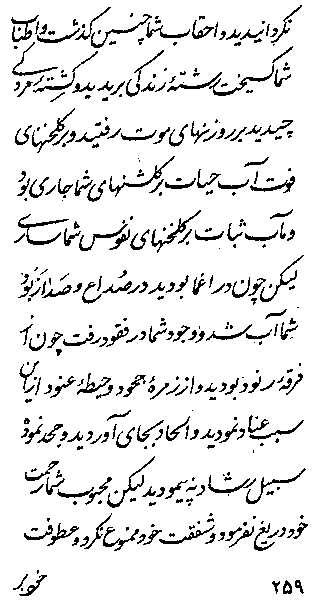 نکردانیدید و احقاب شما چنین گذشت و اطناب
شما گسیخت رشتهٔ زندگی بریدید و کِشتهٔ مردگی
چیدید بر روزنهای موت رفتید و بر گلخنهای
فوت آب حیات بر گلشنهای شما جاری بود
و مآب ثبات بر گلخنهای نفوس شما ساری
لیکن چون در اغما بودید در صُداع و صَدا از بُود
شما آب شد و وجود شما در فقود رفت چون از
فرقهٔ رنود بودید و از زمرهٔ جحود و حیطهٔ عنود از ایشان
سبب عناد نمودید و الحاد بجای آوردید و محمد نمود
سبیل رشاد نه پیمودید لیکن محبوب شما رحمت
خود دریغ نفرمود و شفقت خود ممنوع نکرد و عطوفت
۲۵۹
خود بر